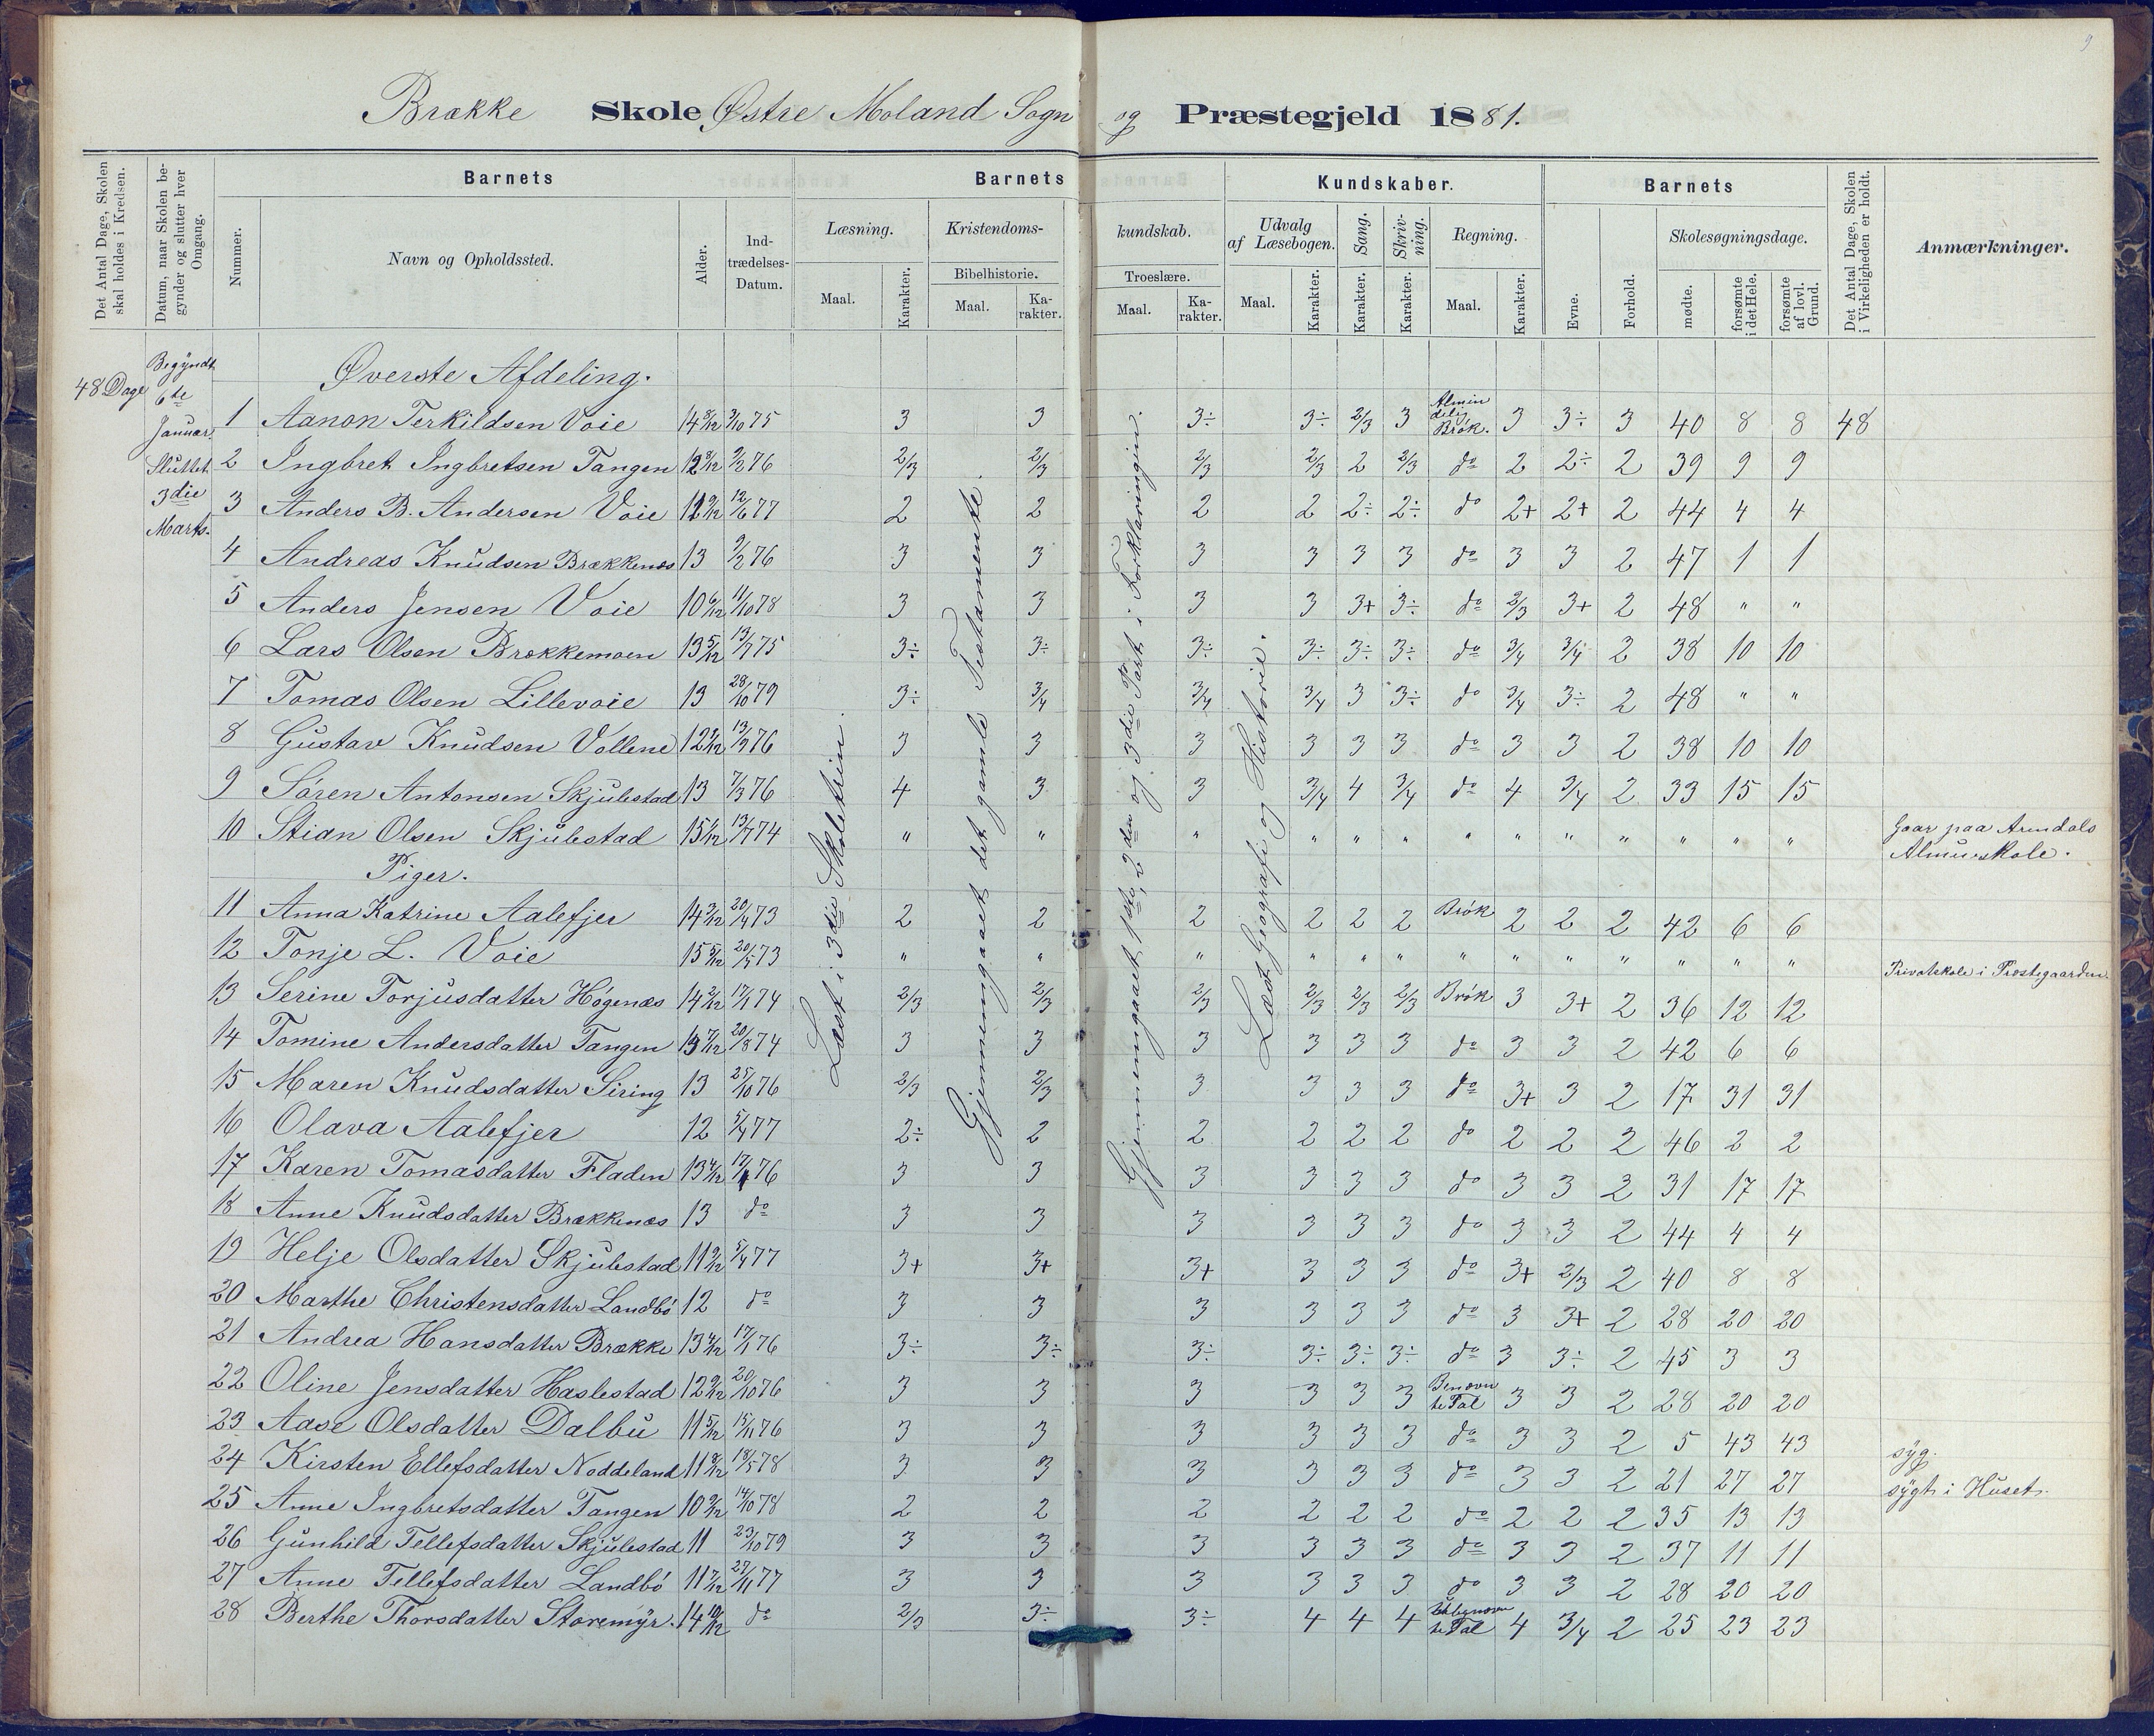 9
Brække Skole Østre Moland Sogn og Præstegjeld 1881.
Det Antal Dage, Skolen skal holdes i Kredsen.
Datum, naar Skolen begynder og slutter hver Omgang.
Barnets
Nummer.
Navn og Opholdssted.
Alder.
Indtrædelses-Datum.
Barnets Kundskaber.
Læsning.
Maal.
Karakter.
Kristendomskundskab.
Bibelhistorie.
Maal.
Karakter.
Troeslære.
Maal.
Karakter.
Udvalg af Læsebogen.
Maal.
Karakter.
Sang.
Karakter.
Skrivning.
Karakter.
Regning.
Maal.
Karakter.
Barnets
Evne.
Forhold.
Skolesøgningsdage.
mødte.
forsømte i det Hele.
forsømte af lovl. Grund.
Det Antal Dage, Skolen i Virkeligheden er holdt.
Anmærkninger.
48 Dage
Begyndt
6te
Januar
Sluttet
3die
Marts.
Læst i 3die Skoletrin.
Gjennemgaaet det gamle Testamente.
Gjennemgaaet 1ste, 2den og 3die Part i Forklaringen.
Læst Geografi og Historie.
Øverste Afdeling.
1 Aanon Terkildsen Voie 14 8/12 3/10 75 3 3 3÷ 3÷ 2/3 3 Almindelig Brök. 3 3÷ 3 40 8 8 48
2 Ingbret Ingbretsen Tangen 12 8/12 9/2 76 2/3 2/3 2/3 2/3 2 2/3 do 2 2÷ 2 39 9 9
3 Anders B. Andersen Voie 12 9/12 12/6 77 2 2 2 2 2÷ 2÷ do 2+ 2+ 2 44 4 4
4 Andreas Knudsen Brækkenæs 13 9/2 76 3 3 3 3 3 3 do 3 3 2 47 1 1
5 Anders Jensen Voie 10 6/12 11/10 78 3 3 3 3 3+ 3÷ do 2/3 3+ 2 48 " "
6 Lars Olsen Brækkemoen 13 5/12 13/7 75 3÷ 3÷ 3÷ 3÷ 3÷ 3÷ do 3/4 3/4 2 38 10 10
7 Tomas Olsen Lillevoie 13 28/10 79 3÷ 3/4 3/4 3/4 3 3÷ do 3/4 3÷ 2 48 " "
8 Gustav Knudsen Vollene 12 7/12 13/3 76 3 3 3 3 3 3 do 3 3 2 38 10 10
9 Sören Antonsen Skjulestad 13 7/3 76 4 3 3 3/4 4 3/4 do 4 3/4 2 33 15 15
10 Stian Olsen Skjulestad 15 1/12 13/7 74 " " " " " " " " " " " " " Gaar paa Arendals Almueskole.
Piger.
11 Anna Katrine Aalefjer 14 3/12 20/4 73 2 2 2 2 2 2 Brök 2 2 2 42 6 6
12 Tonje L. Voie 15 5/12 20/5 73 " " " " " " " " " " " " " Privatskole i Præstegaarden
13 Serine Torjusdatter Högenæs 14 2/12 17/1 74 2/3 2/3 2/3 2/3 2/3 2/3 Brök 3 3+ 2 36 12 12
14 Tomine Andersdatter Tangen 13 7/12 20/8 74 3 3 3 3 3 3 do 3 3 2 42 6 6
15 Maren Knudsdatter Siring 13 25/10 76 2/3 2/3 3 3 3 3 do 3+ 3 2 17 31 31
16 Olava Aalefjer 12 5/4 77 2÷ 2 2 2 2 2 do 2 2 2 46 2 2
17 Karen Tomasdatter Fladen 13 4/12 17/1 76 3 3 3 3 3 3 do 3 3 2 31 17 17
18 Anne Knudsdatter Brækkenæs 13 do 3 3 3 3 3 3 do 3 3 2 44 4 4
19 Helje Olsdatter Skjulestad 11 9/12 5/4 77 3+ 3+ 3+ 3 3 3 do 3+ 2/3 2 40 8 8
20 Marthe Christensdatter Landbö 12 do 3 3 3 3 3 3 do 3 3+ 2 28 20 20
21 Andrea Hansdatter Brække 13 4/12 17/1 76 3÷ 3÷ 3÷ 3÷ 3÷ 3÷ do 3 3÷ 2 45 3 3
22 Oline Jensdatter Haslestad 12 9/12 20/10 76 3 3 3 3 3 3 Benævnte Tal 3 3 2 28 20 20
23 Aase Olsdatter Dalbu 11 5/12 15/11 76 3 3 3 3 3 3 do 3 3 2 5 43 43 syg.
24 Kirsten Ellefsdatter Noddeland 11 8/12 18/5 78 3 3 3 3 3 3 do 3 3 2 21 27 27 sygt i Huset.
25 Anne Ingbretsdatter Tangen 10 9/12 14/10 78 2 2 2 2 2 2 do 2 2 2 35 13 13
26 Gunhild Tellefsdatter Skjulestad 11 23/10 79 3 3 3 3 3 3 do 3 3 2 37 11 11
27 Anne Tellefsdatter Landbö 11 7/12 27/11 77 3 3 3 3 3 3 do 3 3 2 28 20 20
28 Berthe Thorsdatter Storemyr. 14 10/12 do 2/3 3÷ 3÷ 4 4 4 Ubenævnte Tal 4 3/4 2 25 23 23